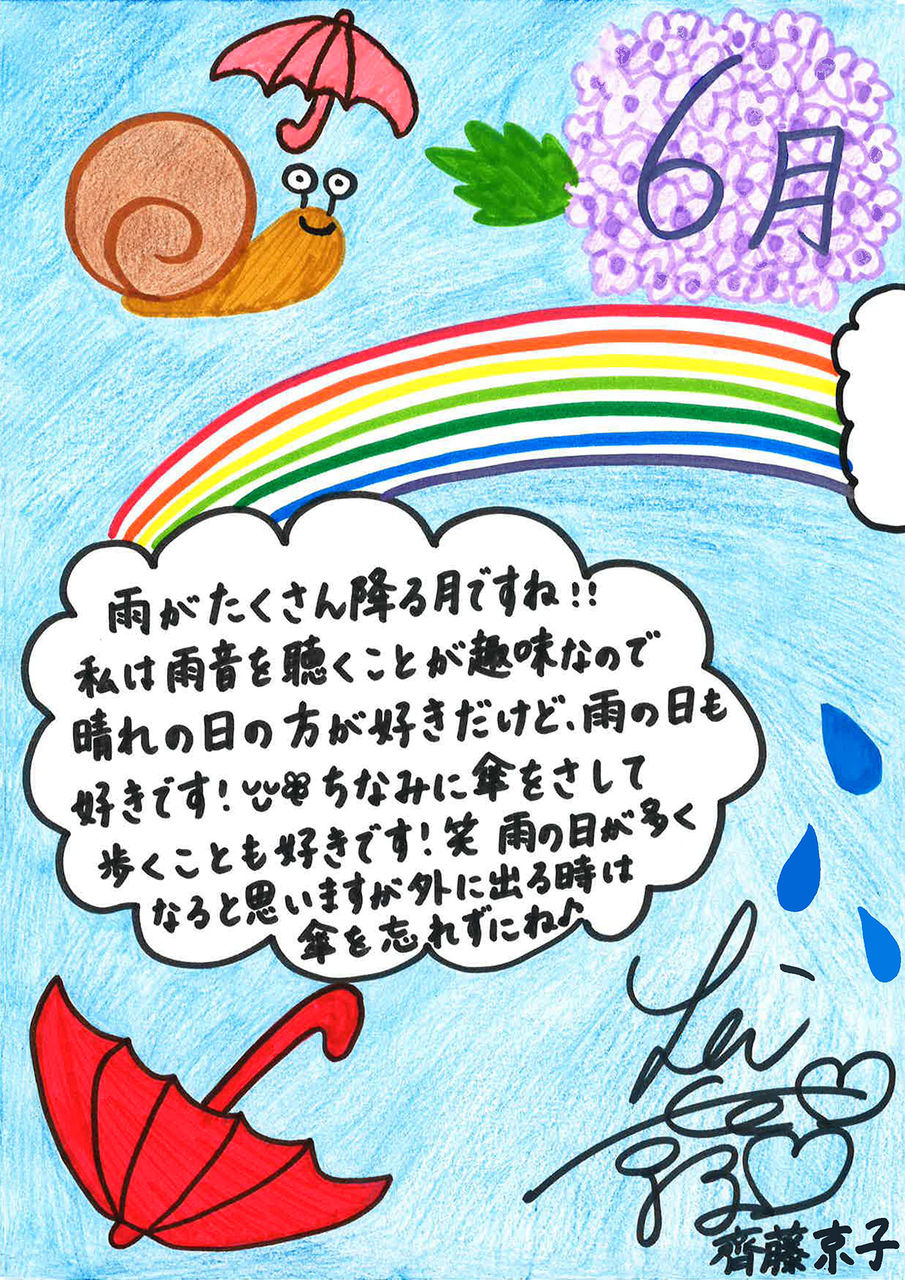 6月
雨がたくさん降る月ですね!!
私は雨音を聴くことが趣味なので
晴れの日の方が好きだけど、雨の日も
好きです!ちなみに傘をさして
歩くことも好きです!笑 雨の日が多く
なると思いますが外に出る時は
傘を忘れずにね♪
齊藤京子